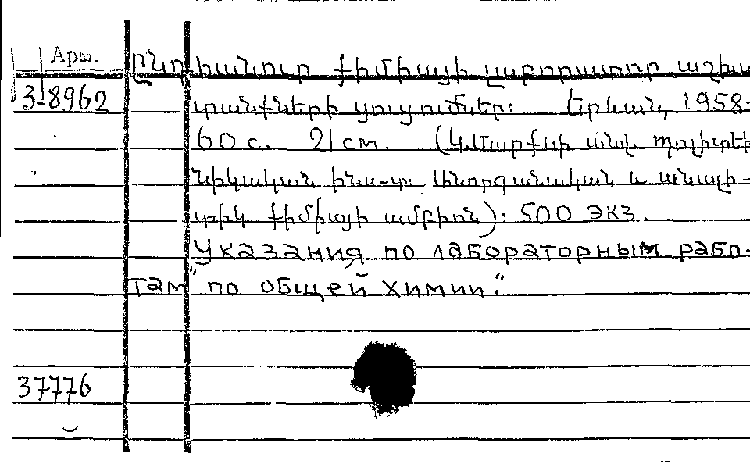 Арм.
Ընդհանուր քիմիայի լաբորատոր աշխա
3-8962
տանքների ցուցումներ: Երևան, 1958
60 с. 21 см. (Կ.Մարքսի անվ. պոլիտեխ
նիկական ինստ-տ. Անօրգանական և անալի-
տիկ քիմիայի ամբիոն): 500 экз.
"Указания по лабораторным рабо-
там по общей химии."
37776